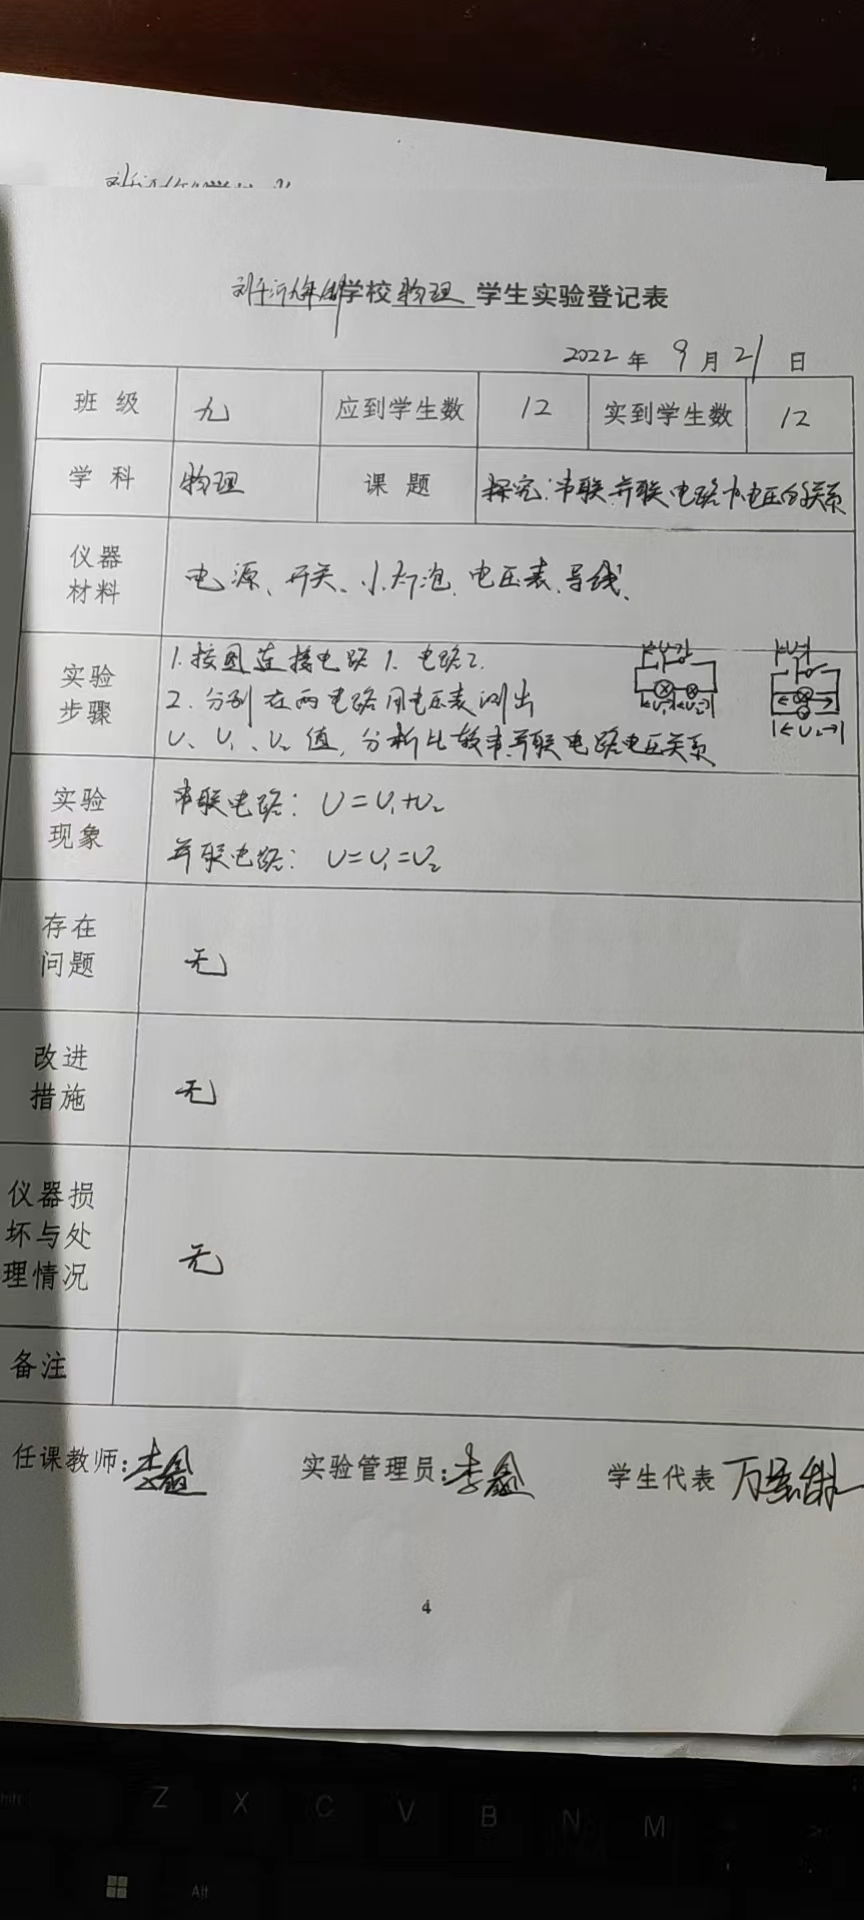 学校物理学生实验登记表
2022年9月21日
班级 九 应到学生数 12 实到学生数 12
学科 物理 课题 探究:串联并联电路中电压的关系
仪器
材料
电源、开关、小灯泡、电压表、导线、
实验
步骤
1.按图连接电路1、电路2.
2.分别在两电路用电压表测出
U、U₁、U₂值,分析比较串、并联电路电压关系
实验
现象
串联电路:U=U₁+U₂
并联电路:U=U₁=U₂
存在
问题
无
改进
措施
无
仪器损
坏与处
理情况
无
备注
任课教师:李鑫 实验管理员:李鑫 学生代表 万
4
Z X C V B N M
Alt